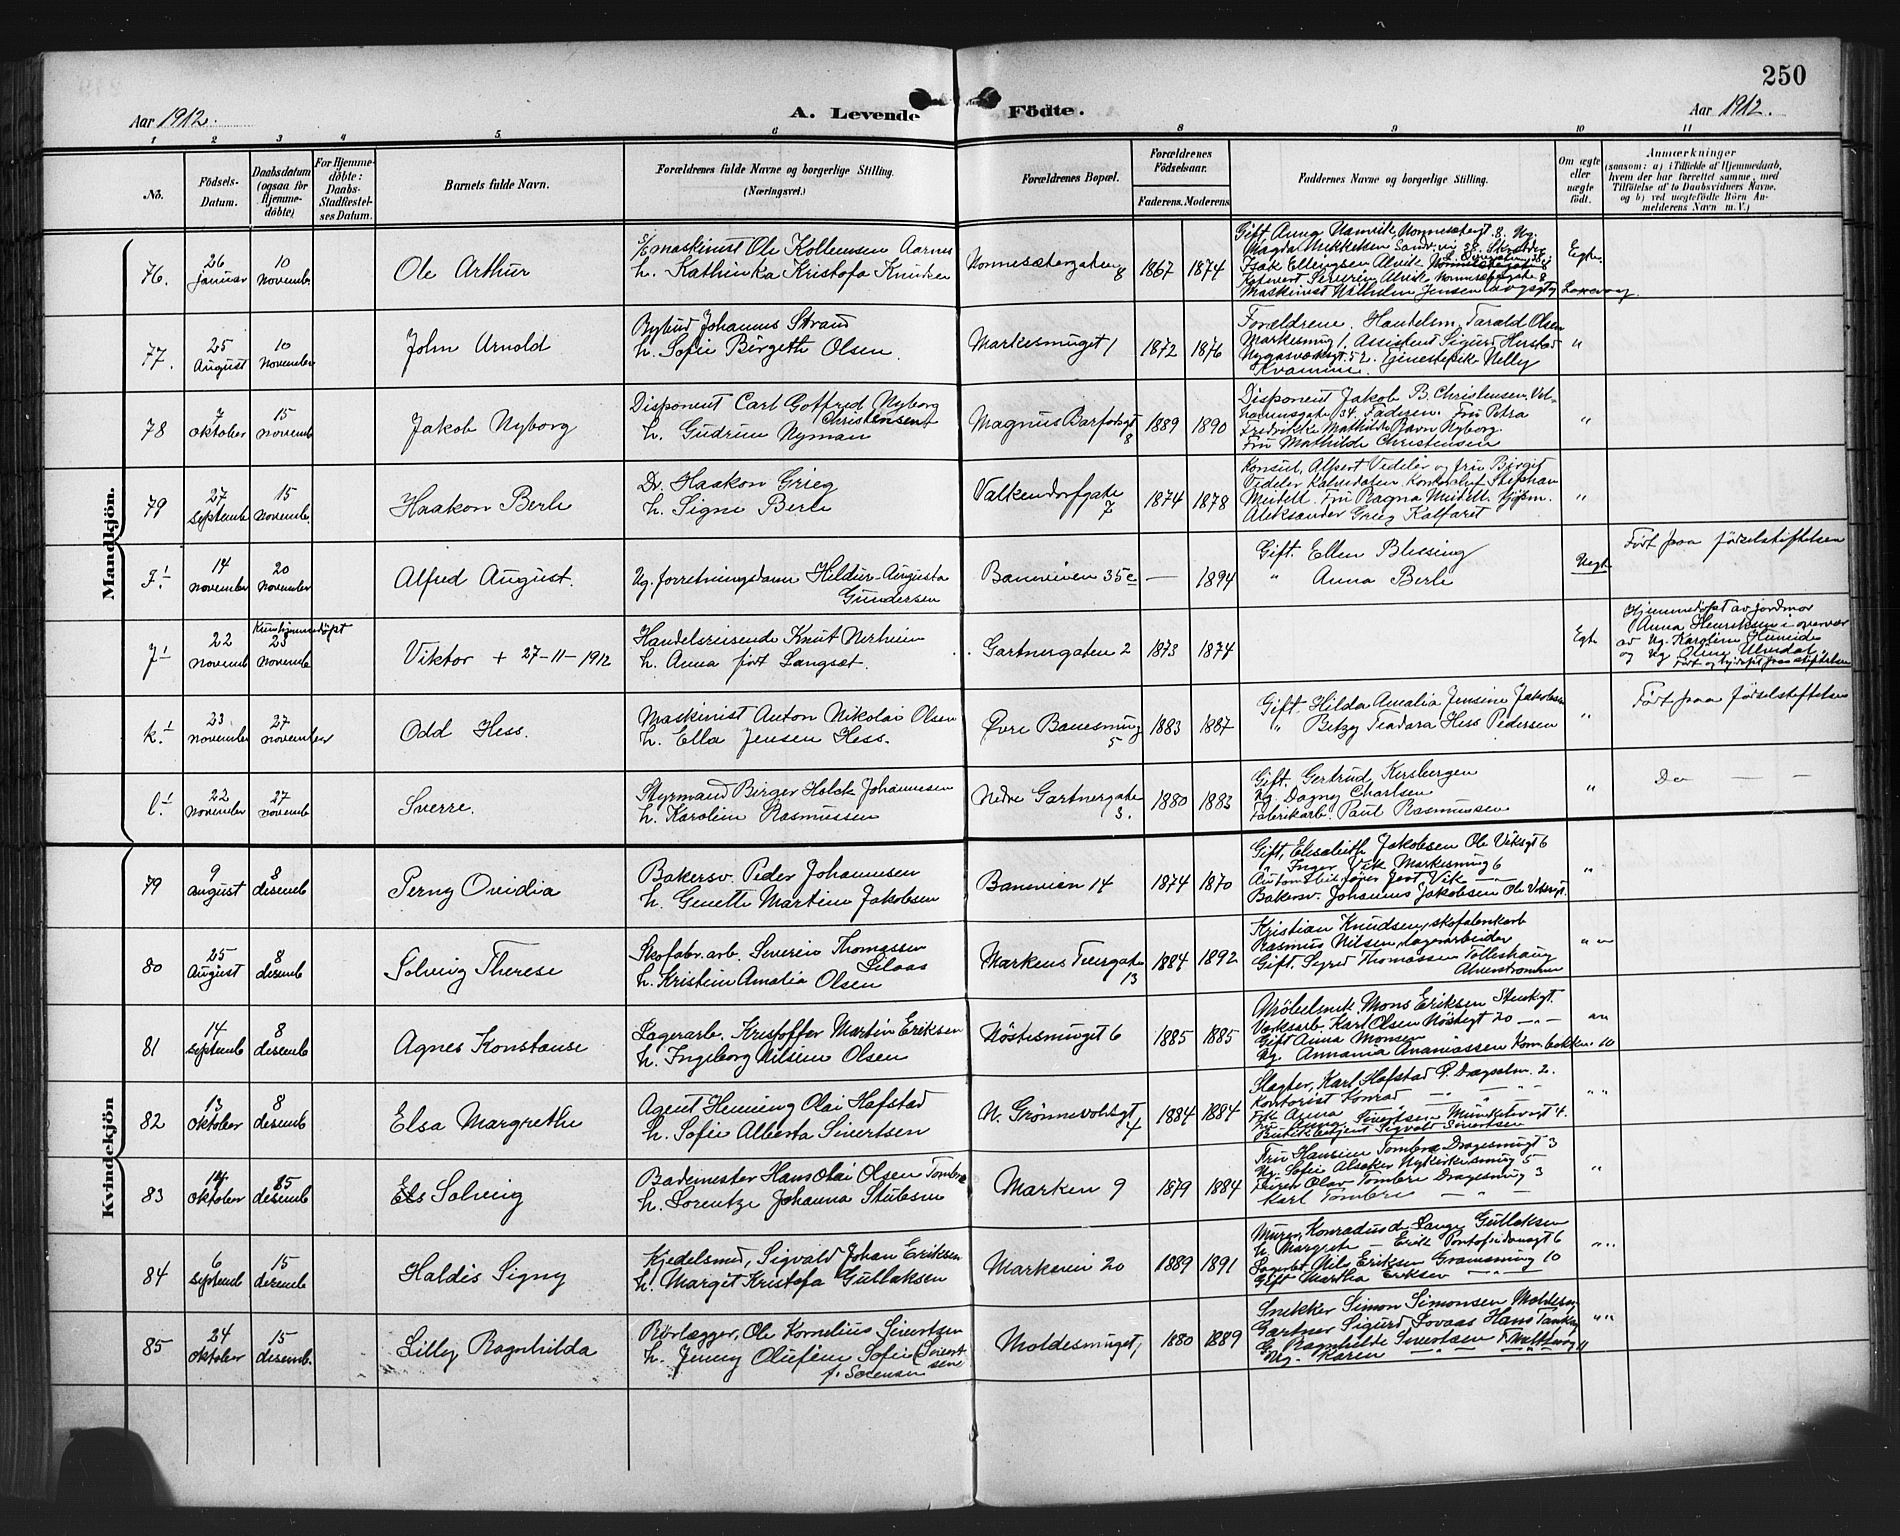 250
Aar 1912.
A. Levende Födte.
Aar 1912.
1 2 3 4 5 6 8 9 10 11
No.
Födsels-Datum.
Daabsdatum (ogsaa for Hjemme-döbte)
For Hjemme-döbte: Daabs-Stadfæstel-ses Datum.
Barnets fulde Navn.
Forældrenes fulde Navne og borgerlige Stilling.
(Næringsvei.)
Forældrenes Bopæl.
Forældrenes Födselsaar.
Faderens. Moderens
Faddernes Navne og borgerlige Stilling.
Om ægte eller uægte födt.
Anmærkninger
(saasom: a) i Tilfælde af Hjemmedaab,
hvem der har forrettet samme, med
Tilföielse af to Daabsvidners Navne.
og b) ved uægtefödte Börn An-
melderens Navn m. V.)
Mandkjön.
76. 26 januar 10 November
Ole Arthur
maskinist Ole Kollensen Aarnes
h. Kathinka Kristofa Knudsen
Nonnesætergaten 8
1867 1874
Magda Mikkelsen Sandv.
Isak Ellingsen Alvik
Maskinist Wilhelm Jensen Laxevaag.
Egte.
77. 25 August 10 November
John Arnold
Bybud Johannes Strand
h. Sofie Birgeth Olsen.
Markesmuget 1
1872 1876
Forældrene. Handelsm. Tarald Olsen
Markesmug 1. Assistent Sigurd
52. Tjenestepike Nelly
Kvamme.
"
78 7 oktober 15 novemb
Jakob Nyborg
Disponent Carl Gotfred Nyborg
Christensen
h. Gudrun Nyman
Magnus Barfodsgt 8
1889 1890
Disponent Jakob B. Christensen, Vil-
helmsgate 34. Faderen. Fru Petra
Fredrikke Mathilde Ravn Nyborg.
Fru Mathilde Christensen
"
79 27 septemb 15 novemb.
Haakon Berle
Dr. Haakon Grieg
h. Signe Berle
Valkendorfgate 7
1874 1878
Konsul, Alfert Vedeler og fru Birgit
Vedeler Kalvedalen. Stephan
Mertell. Fru Ragna Mertell.
Aleksander Grieg Kalfaret
"
14 november 20 november
Alfred August.
Ug. forretningsdame Hildur Augusta
Gundersen
Baneveien 35c
— 1894
Gift. Ellen Blessing
" Anna Berle
Uegte
Født paa fødselstiftelsen
J¹ 22 novemb Kun hjemmedøpt 23 novemb
Viktor + 27-11-1912
Handelsreisende Knut Nerheim
h. Anna født Langset.
Gartnergaten 2
1873 1874
Egte
Hjemmedøpt av jordmor
Anna Henriksen i overvær
av Ug. Karoline
og Ug Oline Ulvedal
Født og hj.døpt paa stiftelsen
K¹ 23 november 27 november
Odd Hess.
Maskinist Anton Nikolai Olsen
h. Ella Jensen Hess.
Øvre Banesmug 5
1883 1887
Gift. Hilda Amalia Jensine Jakobsen
" Betzy Teadara Hess Pedersen
"
Født paa fødselstiftelsen
l¹ 22 November 27 novemb
Sverre.
Styrmand Birger Holck Johannesen
h. Karoline Rasmussen
Nedre Gartnergate 3.
1880 1883
Gift. Gertrud Kersbergen
Ug. Dagny Charlsen
Fabrikarb. Paul Rasmussen
"
Do — —
Kvindekjön
79 9 august 8 desemb
Perny Ovidia
Bakersv. Peder Johannesen
h. Genette Martine Jakobsen
Baneveien 14
1874 1870
Gift, Elisabeth Jakobsen Ole Viksgt 6
" Inger Vik Markesmug 6
Automobilfører Jost Vik
Bakersv. Johannes Jakobsen Ole Viksgt.
"
80 25 August 8 desemb
Solveig Therese
Skofabr. arb. Severin Thomassen
Lilaas
h. Kristine Amalia Olsen
Markens Tvergate 13
1884 1892
Kristian Knudsen, skofabrikarb
Rasmus Nilsen, lagerarbeider
Gift. Sigrid Thomassen Tolleshaug
" "
81 14 septemb 8 desemb
Agnes Konstanse
Lagerarb. Kristoffer Martin Eriksen
h. Ingeborg Nilsine Olsen
Nöstesmuget 6
1885 1885
Möbelsnk. Mons Eriksen Stenkgt.
Verksarb. Karl Olsen Nöstegt 20
Gift Anna Monsen
Ug. Annania Ananiassen Kornebakken 10
" "
82 13 oktober 8 desemb
Elsa Margrethe
Agent Henning Olai Hafstad
h. Sofie Alberta Sivertsen
N. Grönnevoldsgt 4
1884 1884
Slagter, Karl Hafstad P. Dragsalm. 2.
Kontorist Konrad — " —
Fru Anna Sivertsen Munkebotsgt 4.
Butikbetjent Sigvald Sivertsen
" "
83 14 oktober 85 desemb
Els Solveig
Bademester Hans Olai Olsen Tombre
h. Lorentze Johanna Stubsen
Marken 9
1879 1884
Fru Hansine Tombre Dragesmugt 3
Ug. Sofie Alsaker Nykirkesmug 5
Olav Tombre Dragesmug 3
Karl Tombre — " —
"
84 6 septemb 15 desemb
Haldis Signy
Kjedelsmed, Sigvald Johan Eriksen
h. Margit Kristofa Gullaksen
Markeveien 20
1889 1891
Murer, Konradus de Lange Gullaksen
h. Margrete Erik Pontopidansgt 6
Nils Eriksen 10
Gift Martha Eriksen — " —
" "
85 24 oktober 15 desemb.
Lilly Ragnhilda
Rörlægger, Ole Kornelius Sivertsen
h. Jenny Olufine Sofie (Sivert
sen
f. Sorensen
Moldesmuget,
1880 1889
Snekker Simon Simonsen Moldesm
Gartner Sigurd Lovaas Hans Tanks
G. Ragnhilde Sivertsen
Ug. Karen — " —
" "